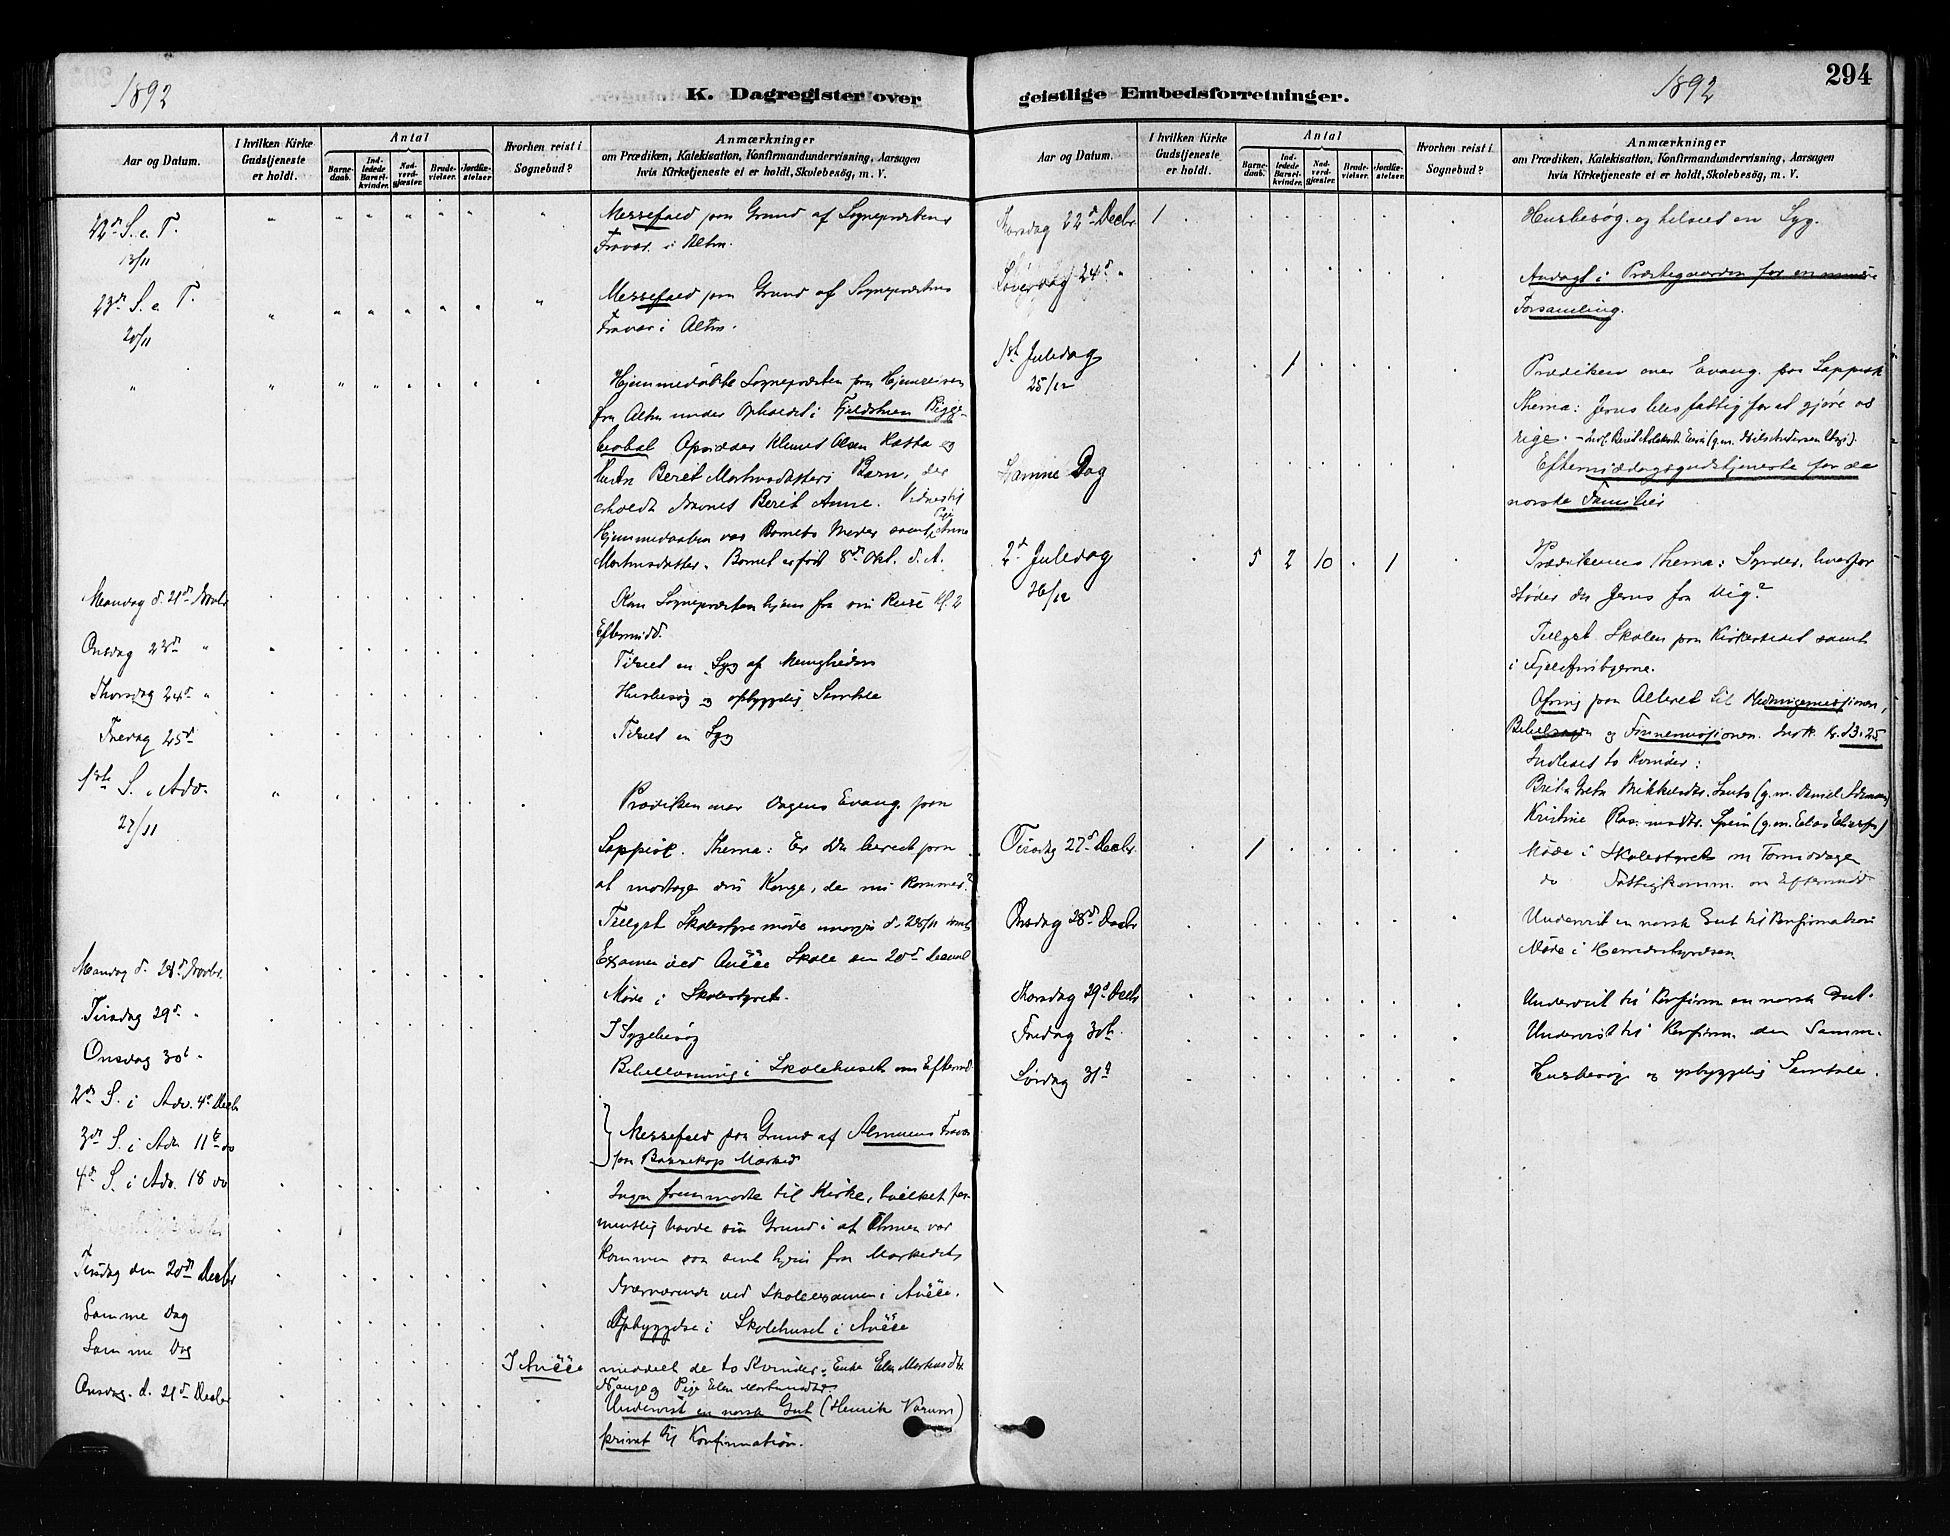 1892
K. Dagregister over
Aar og Datum.
I hvilken Kirke Gudstjeneste er holdt.
Antal
Barnedaab.
Indledede Barselkvinder.
Nadverdgjæster.
Brudevielser.
Jordfæstelser.
Hvorhen reist i Sognebud?
Anmærkninger
om Prædiken, Katekisation, Konfirmandundervisning, Aarsagen
hvis Kirketjeneste ei er holdt, Skolebesøg, m. V.
22de S. e. T.
13/11
Messefald paa Grund af Sogneprestens
Fravær i Alten.
23de S. e. T.
20/11
Messefald paa Grund af Sogneprestens
Fravær i Alten.
Hjemmedøbte Sognepræsten paa Hjemreisen
fra Alten under Opholdet i Fjeldstuen
Opsidder Klemet Olsen og
Hustru Berit Mortensdatters Barn, der
erholdt Navnet Berit Anne. Vidner til
Hjemmedaaben var Barnets Moder samt Pige Anne
Mortensdatter. Barnet er født 8de Okt. d. A.
Mandag d. 21de Novbr
Kom Sognepræsten hjem fra sin Reise Kl. 2
Eftermidd.
Onsdag 23de "
Tilset en Syg af Menigheden
Thorsdag 24de "
Husbesøg og opbyggelig Samtale
Fredag 25de
Tilset en Syg
1ste S. i Adv.
27/11
Prædiken over Dagens Evang. paa
Lappisk. Thema: Er Du beredt paa
at modtage din Konge, der nu kommer?
Tillyst Skolestyremøde d. 28/11 samt
Examen ved Skole den 20de Decembr
Mandag d. 28de Novbr.
Møde i Skolestyret.
Tirsdag 29de "
I Sygebesøg
Onsdag 30te "
Bibellæsning i Skolehuset om Efterm.
2den S. i Adv. 4de Decbr
3die S. i Adv. 11te do
Messefald paa Grund af Almuens Fravær
paa Bossekop Marked
4de S. i Adv. 18 do
Ingen fremmødte til Kirke, hvilket for-
mentlig havde sin Grund i at Almuen var
kommen saa sent hjem fra Markedet
Tirsdag den 20de Decbr
Nærværende ved Skoleexamen i
Samme Dag
Opbyggelse i Skolehuset i
Samme Dag
I
meddelt de to Kvinder: Enke Elen
og Pige Elen Mortensdtr.
Onsdag. d. 21de Decbr
Undervist en norsk Gut (Henrik)
privat til Konfirmation.
geistlige Embedsforretninger.
1892
294
Aar og Datum.
I hvilken Kirke Gudstjeneste er holdt.
Antal
Barnedaab.
Indledede Barselkvinder.
Nadverdgjæster.
Brudevielser.
Jordfæstelser.
Hvorhen reist i Sognebud?
Anmærkninger
om Prædiken, Katekisation, Konfirmandundervisning, Aarsagen
hvis Kirketjeneste ei er holdt, Skolebesøg, m. V.
Torsdag 22de Decbr 1
Husbesøg og tilseet en Syg.
Løverdag 24de "
Andagt i Præstegaarden for en mindre
Forsamling.
1ste Juledag
25/12
1
Prædiken over Evang. paa Lappisk
Thema: Jesus blev fattig for at gjøre os
rige.
Samme Dag
Eftermiddagsgudstjeneste for de
norske Familier
2den Juledag
26/12
5 2 10 . 1
Prædikenens Thema: Synder, hvorfor
støder du Jesus fra Dig?
Tillyst Skolen paa Kirkestedet samt
i Fjeldbyerne.
Ofring paa Alteret til Hedningemissionen,
Bibelsagen og Finnemissionen. Indk. Kr. 13.25
Indledet to Kvinder:
Tirsdag 27de Decbr.
1
Møde i Skolestyret om Formiddagen
do Fattigkomm. om Eftermidd
Onsdag 28de Decbr
Undervist en norsk Gut til Konfirmation
Møde i Herredsstyrelsen
Thorsdag 29de Decbr
Undervist til Konfirm en norsk Gut.
Fredag 30te
Undervist til Konfirm. den Samme.
Lørdag 31te
Husbesøg og opbyggelig Samtale.